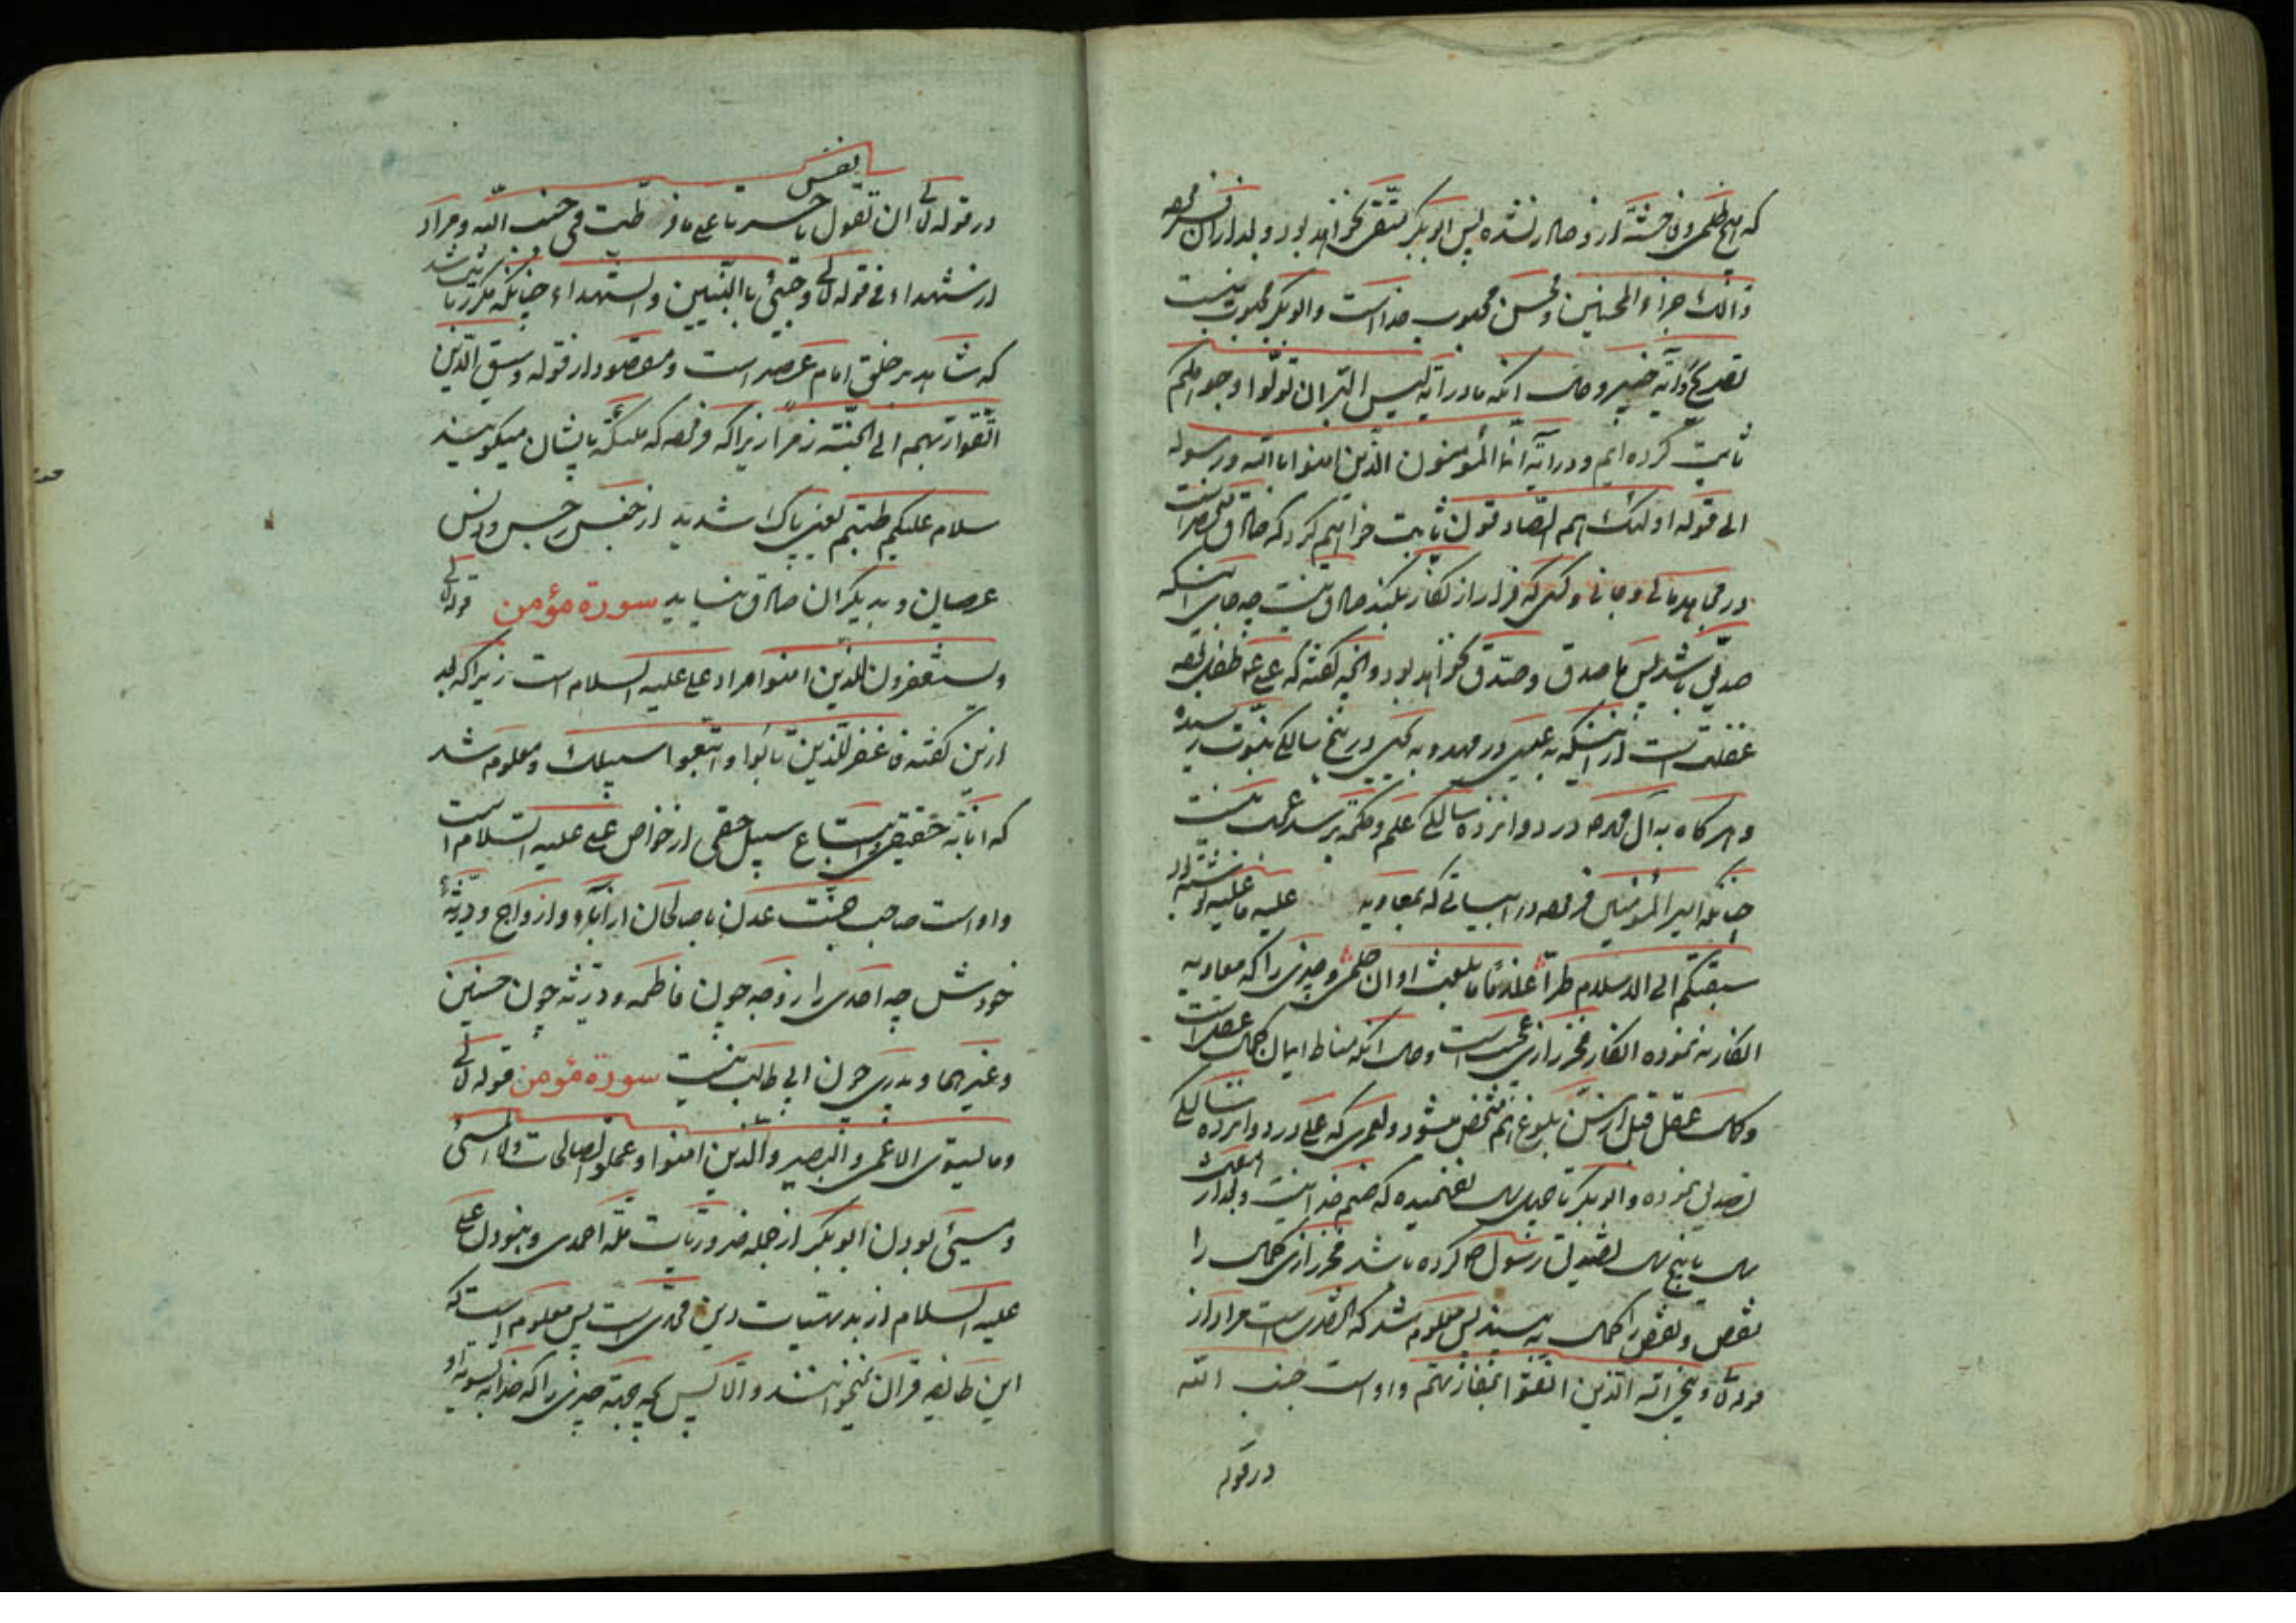 که هیچ ظلمی و فاحشهٔ از و صادر نشده پس ابوبکر متقی نخواهد بود و بعد از ان فرموده
ذالک جزاء المحسنین و محسن محبوب خداست و ابوبکر محبوب نیست
آیه خیبر و حال انکه ما در آیه لیس البر ان تولوا وجوهکم
ثابت کرده ایم و در آیه انما المؤمنون الذین امنوا بالله و رسوله
الی قوله اولئک هم الصادقون ثابت خواهیم کرد که صادق
در و کسی که فرار از کفار بکند صادق نیست چه جای اینکه
صدیق باشد پس ما صدق و صدق نخواهد بود و انچه گفته که علی طفل بوده
غفلت است از اینکه عیسی در مهد و یحیی در پنج سالگی بنبوت رسیده
و هر گاه در دوازده سالگی علم و حکمه برسد عجب نیست
چنانکه امیر المؤمنین فرموده در ابیاتی که بمعاویه علیه ما علیه نوشته
سبقتکم الی الاسلام طرا غلاما ما بلغت اوان حلمی و چیزی را که معاویه
انکار نه نموده انکار فخر رازی عجب است و حال انکه مناط ایمان کمال عقل است
و کمال عقل قبل از سن بلوغ هم مشخص میشود و که علی در دوازده سالگی
تصدیق نموده و ابوبکر تا چهل سال نفهمیده که صنم خدا نیست و بعد از
سال یا پنج سال تصدیق رسول کرده باشد فخر رازی کمال را
نقص و نقص را کمال پس معلوم شد که است مراد از
قوله تعالی و ینجی الله الذین اتقوا بمفازتهم و اوست جنب الله
در قوله
نفس
در قوله تعالی ان تقول یا حسرتا علی ما فرطت فی جنب الله و مراد
از شهداء فی قوله تعالی و جیئ بالنبیین و الشهداء چنانکه مکرر بیان شد
که شاهد بر خلق امام عصر است و مقصود از قوله وسیق الذین
اتقوا ربهم الی الجنة زمرا زیرا که فرموده که ملئکه بایشان میگویند
سلام علیکم طبتم یعنی پاک شدید از خبس رجس و دنس
عصیان و بدیگران صادق نیاید سورة مؤمن قوله تعالی
و یستغفرون للذین امنوا مراد علی علیه السلام است زیرا که بعد
ازین گفته فاغفر للذین تابوا و اتبعوا سبیلک و معلوم شد
که انابه حقیقی و اتباع سبیل حقی از خواص علی علیه السلام است
و اوست صاحب جنت عدن با صالحان از آباء و ازواج و ذریهٔ
خودش چه احدی را زوجه چون فاطمه و ذریه چون حسنین
و غیرهما و پدری چون ابی طالب نیست سورة مؤمن قوله تعالی
و ما یستوی الاعمی و البصیر و الذین امنوا و عملوا الصالحات ولا المسئ
و مسئ بودن ابوبکر از جمله ضروریات ملة احمدی و نبودن علی
علیه السلام از بدیهیات دین محمدی است پس معلوم است که
این طایفه قران نمیخوانند والا پس بچه جهة چیزی را که خدا بتسویه او